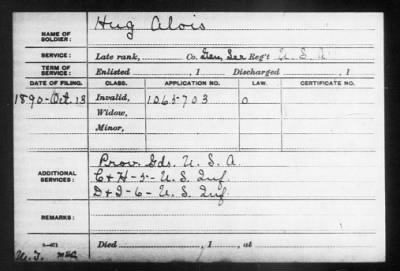 NAME OF SOLDIER: Hug Alois
SERVICE: Late rank, Co. Gen. Ser Reg't U. S. A.
TERM OF SERVICE: Enlisted , 1 Discharged , 1
DATE OF FILING. CLASS. APPLICATION NO. LAW. CERTIFICATE NO.
1890-Oct. 13 Invalid, 1065703 0
Widow,
Minor,
ADDITIONAL SERVICES: Prov. Gds. U. S. A.
C+H-5-U.S. Inf
D+I-6-U.S. Inf.
REMARKS:
Died , 1 , at